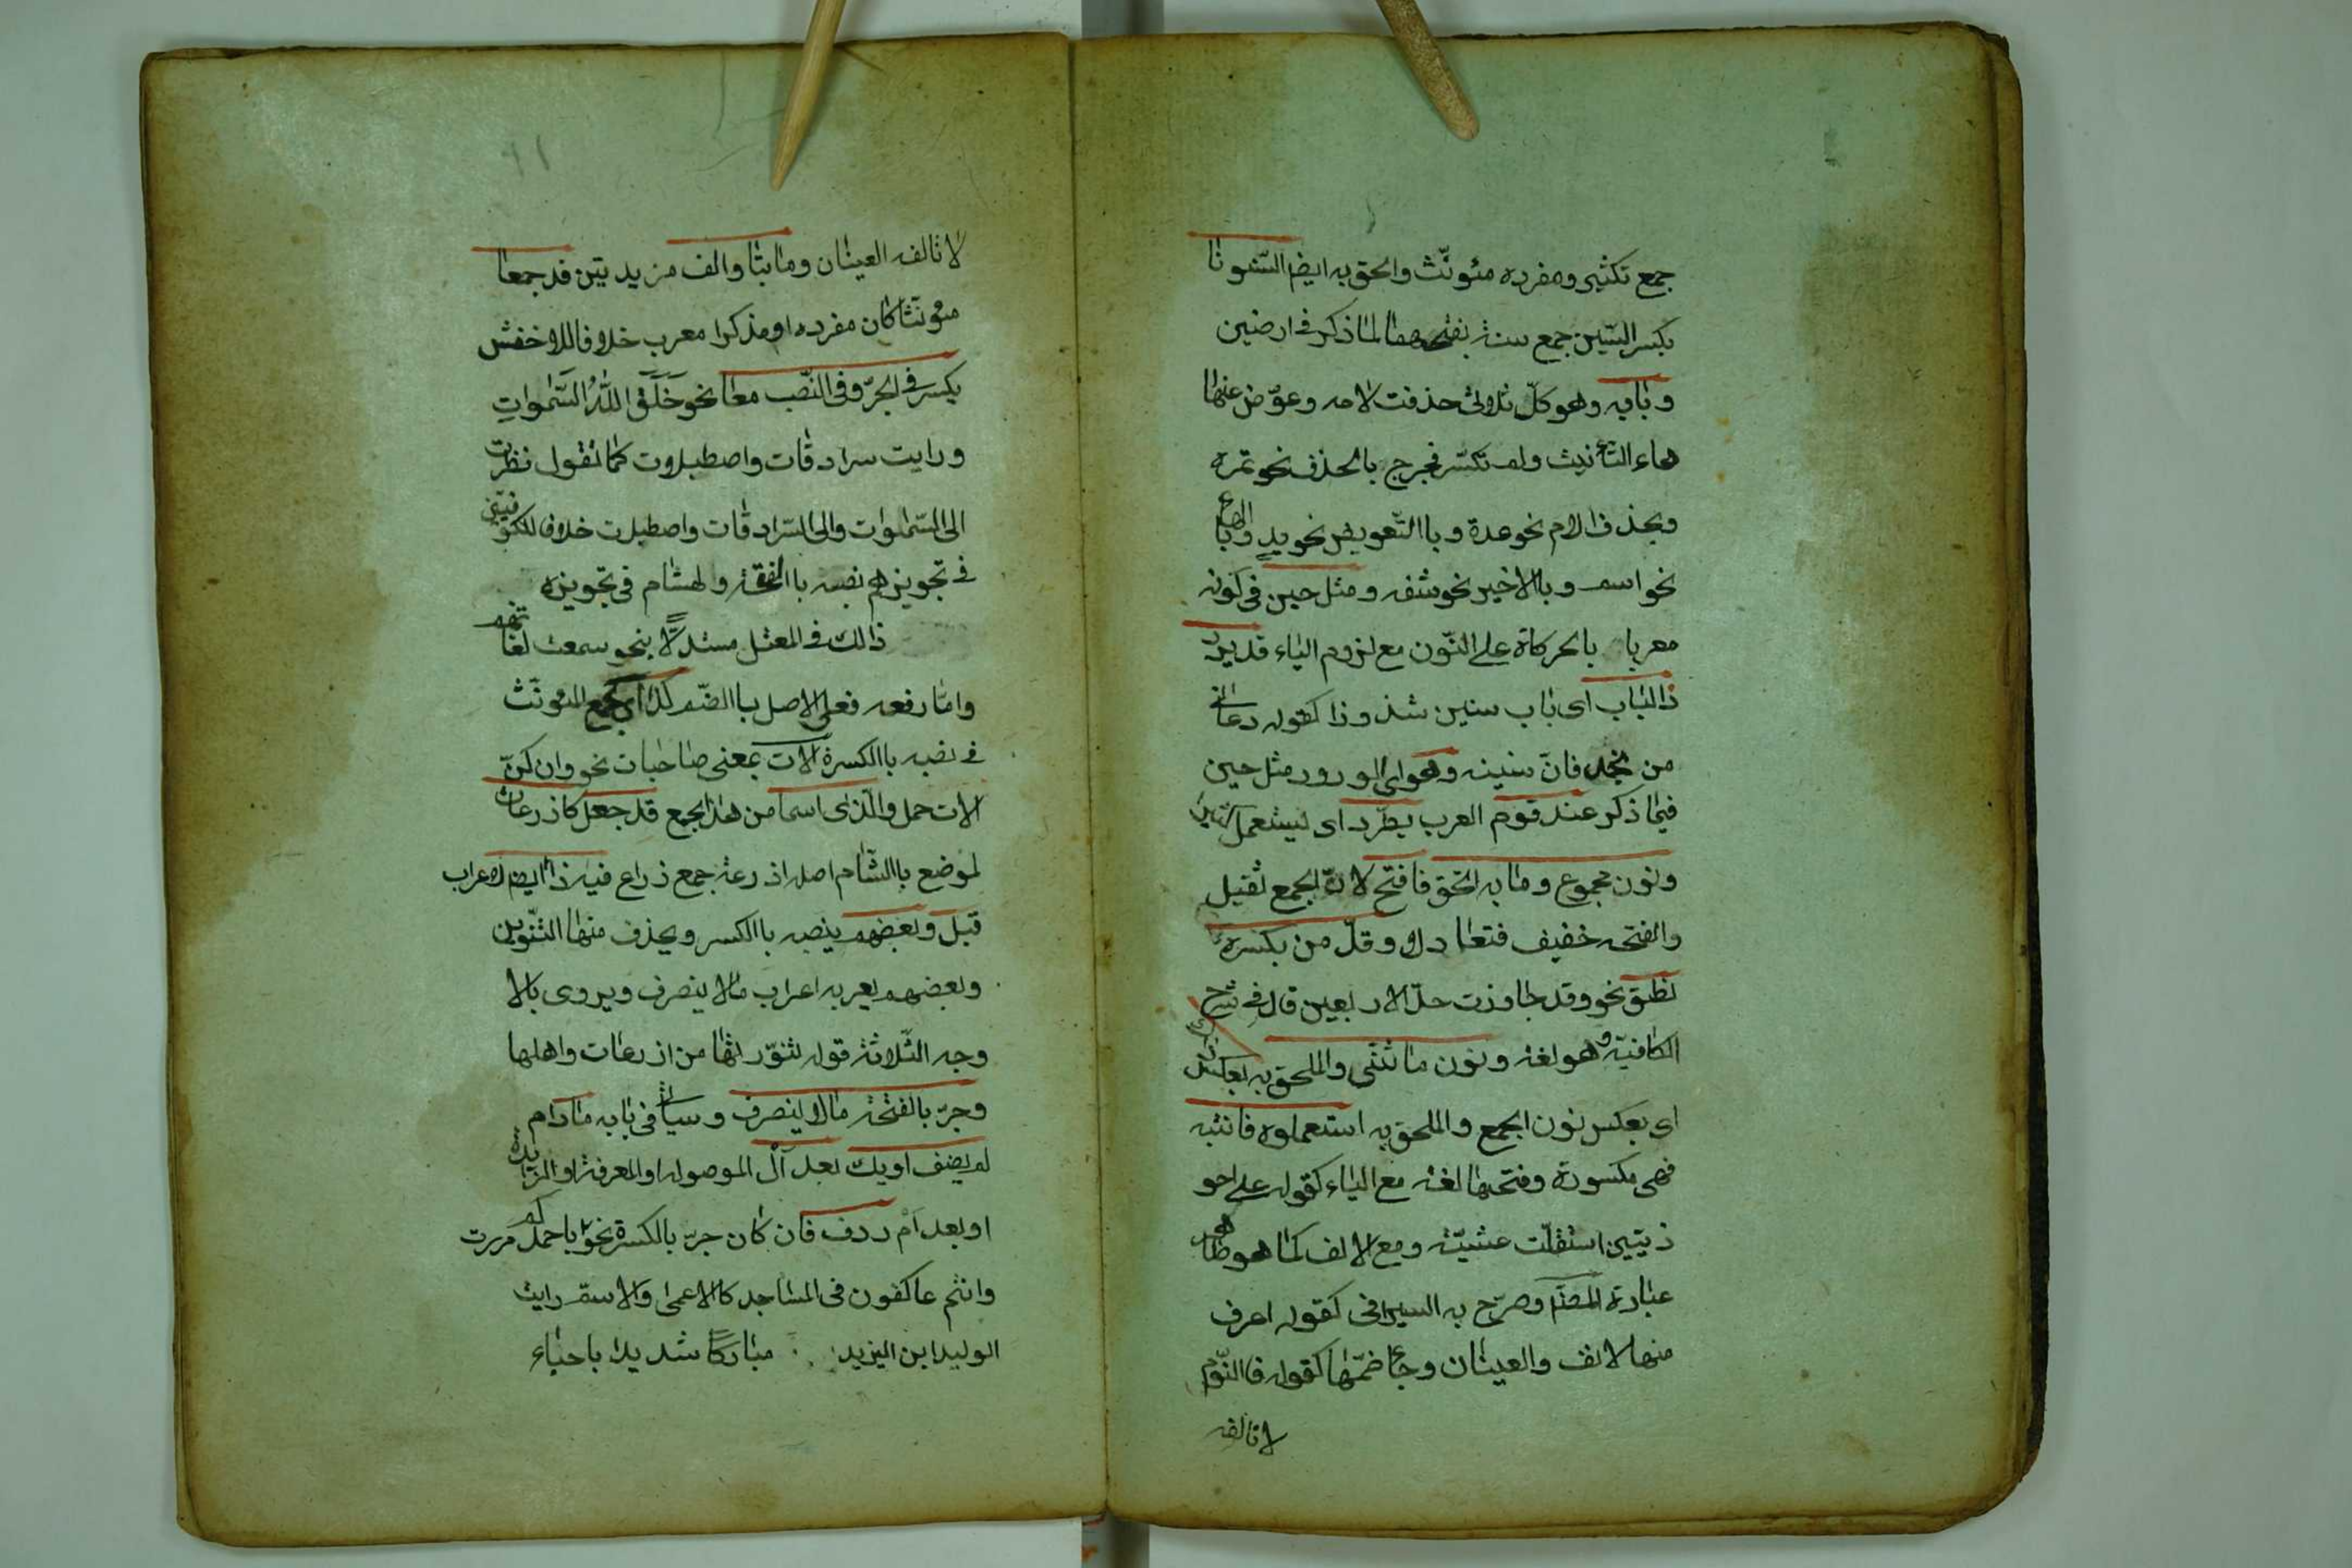 جمع تكثير ومفرده مئونّث والحق به ايضا السّنونا
بكسر السّين جمع سنة بفتحها لما ذكر في ارضين
وبابه وهو كلّ ثلاثى حذفت لامه وعوّض عنها
هاء التأنيث ولم تكسّر فخرج بالحذف نحو تمره
وبحذف الام نحو عدة وباالتّعويض نحو يد وبالهاء
نحو اسم وبالاخير نحو شفه ومثل حين في كونه
معربا بالحركاة على النّون مع لزوم الياء قد يرد
ذا لباب اى باب سنين شذوذا كقوله دعانى
من نجد فانّ سنينه وهو اى الورود مثل حين
فيما ذكر عند قوم العرب يطّرد اى يستعمل كثيرا
ونون مجموع وما به التحق فافتح لانّ الجمع ثقيل
والفتحه خفيف فتعادلا وقلّ من بكسره
نطق نحو وقد جاوزت حدّ الاربعين قال في شرح
الكافيّه وهو لغة ونون ما ثنّى والملحق به بعكس ذاك
اى بعكس نون الجمع والملحق به استعملوه فانتبه
فهى مكسورة وفتحها لغة مع الياء كقوله على احو
ذيّين استقلّت عشيّة ومع الالف كما هو ظاهر
عبارة المصنّم وصرّح به السيرافى كقوله اعرف
منها لانف والعينان وجاء ضمّها كقوله فاالنّوم
لا تالفه
١١
لا تالفه العينان وما بتا والف مزيدتين قد جمعا
مئونّثا كان مفرده او مذكرا معرب خلافا للاخفش
يكسر في الجرّ وفى النّصب معا نحو خَلَقَ اللّٰهُ السَّمٰواتِ
ورايت سرادقات واصطبلات كما تقول نظرت
الى السّمٰوات والى السّرادقات واصطبلات خلافا للكوفيّين
في تجويزهم نصبه باالفتحة ولهشام فى تجويزه
ذالك في المعتل مستدلًّا بنحو سمعت لغاتهم
وامّا رفعه فعلى الاصل باالضّم كذا اى كجمع المئونّث
في نصبه باالكسرة الات بمعنى صاحبات نحو وان كنّ
الات حمل والّذى اسما من هذا الجمع قد جعل كاذرعات
لموضع باالشّام اصله اذرعة جمع ذراع فيه ذا ايضا لاعراب
قبل وبعضهم ينصبه باالكسر ويحذف منها التّنوين
وبعضهم يعربه اعراب مالا ينصرف ويروى بالا
وجه الثّلاثة قوله تنوّرتها من اذرعات واهلها
وجرّ بالفتحة مالا ينصرف وسياتى فى بابه مادام
لم يضف اويك بعد أل الموصوله او المعرفة او الزّايدة
او بعد أم ردف فان كان جرّ بالكسرة نحو مررت باحمدكم
وانتم عاكفون فى المساجد كالاعمى والاسمّ رايت
الوليد ابن اليزيد مباركًا شديدا باحباء